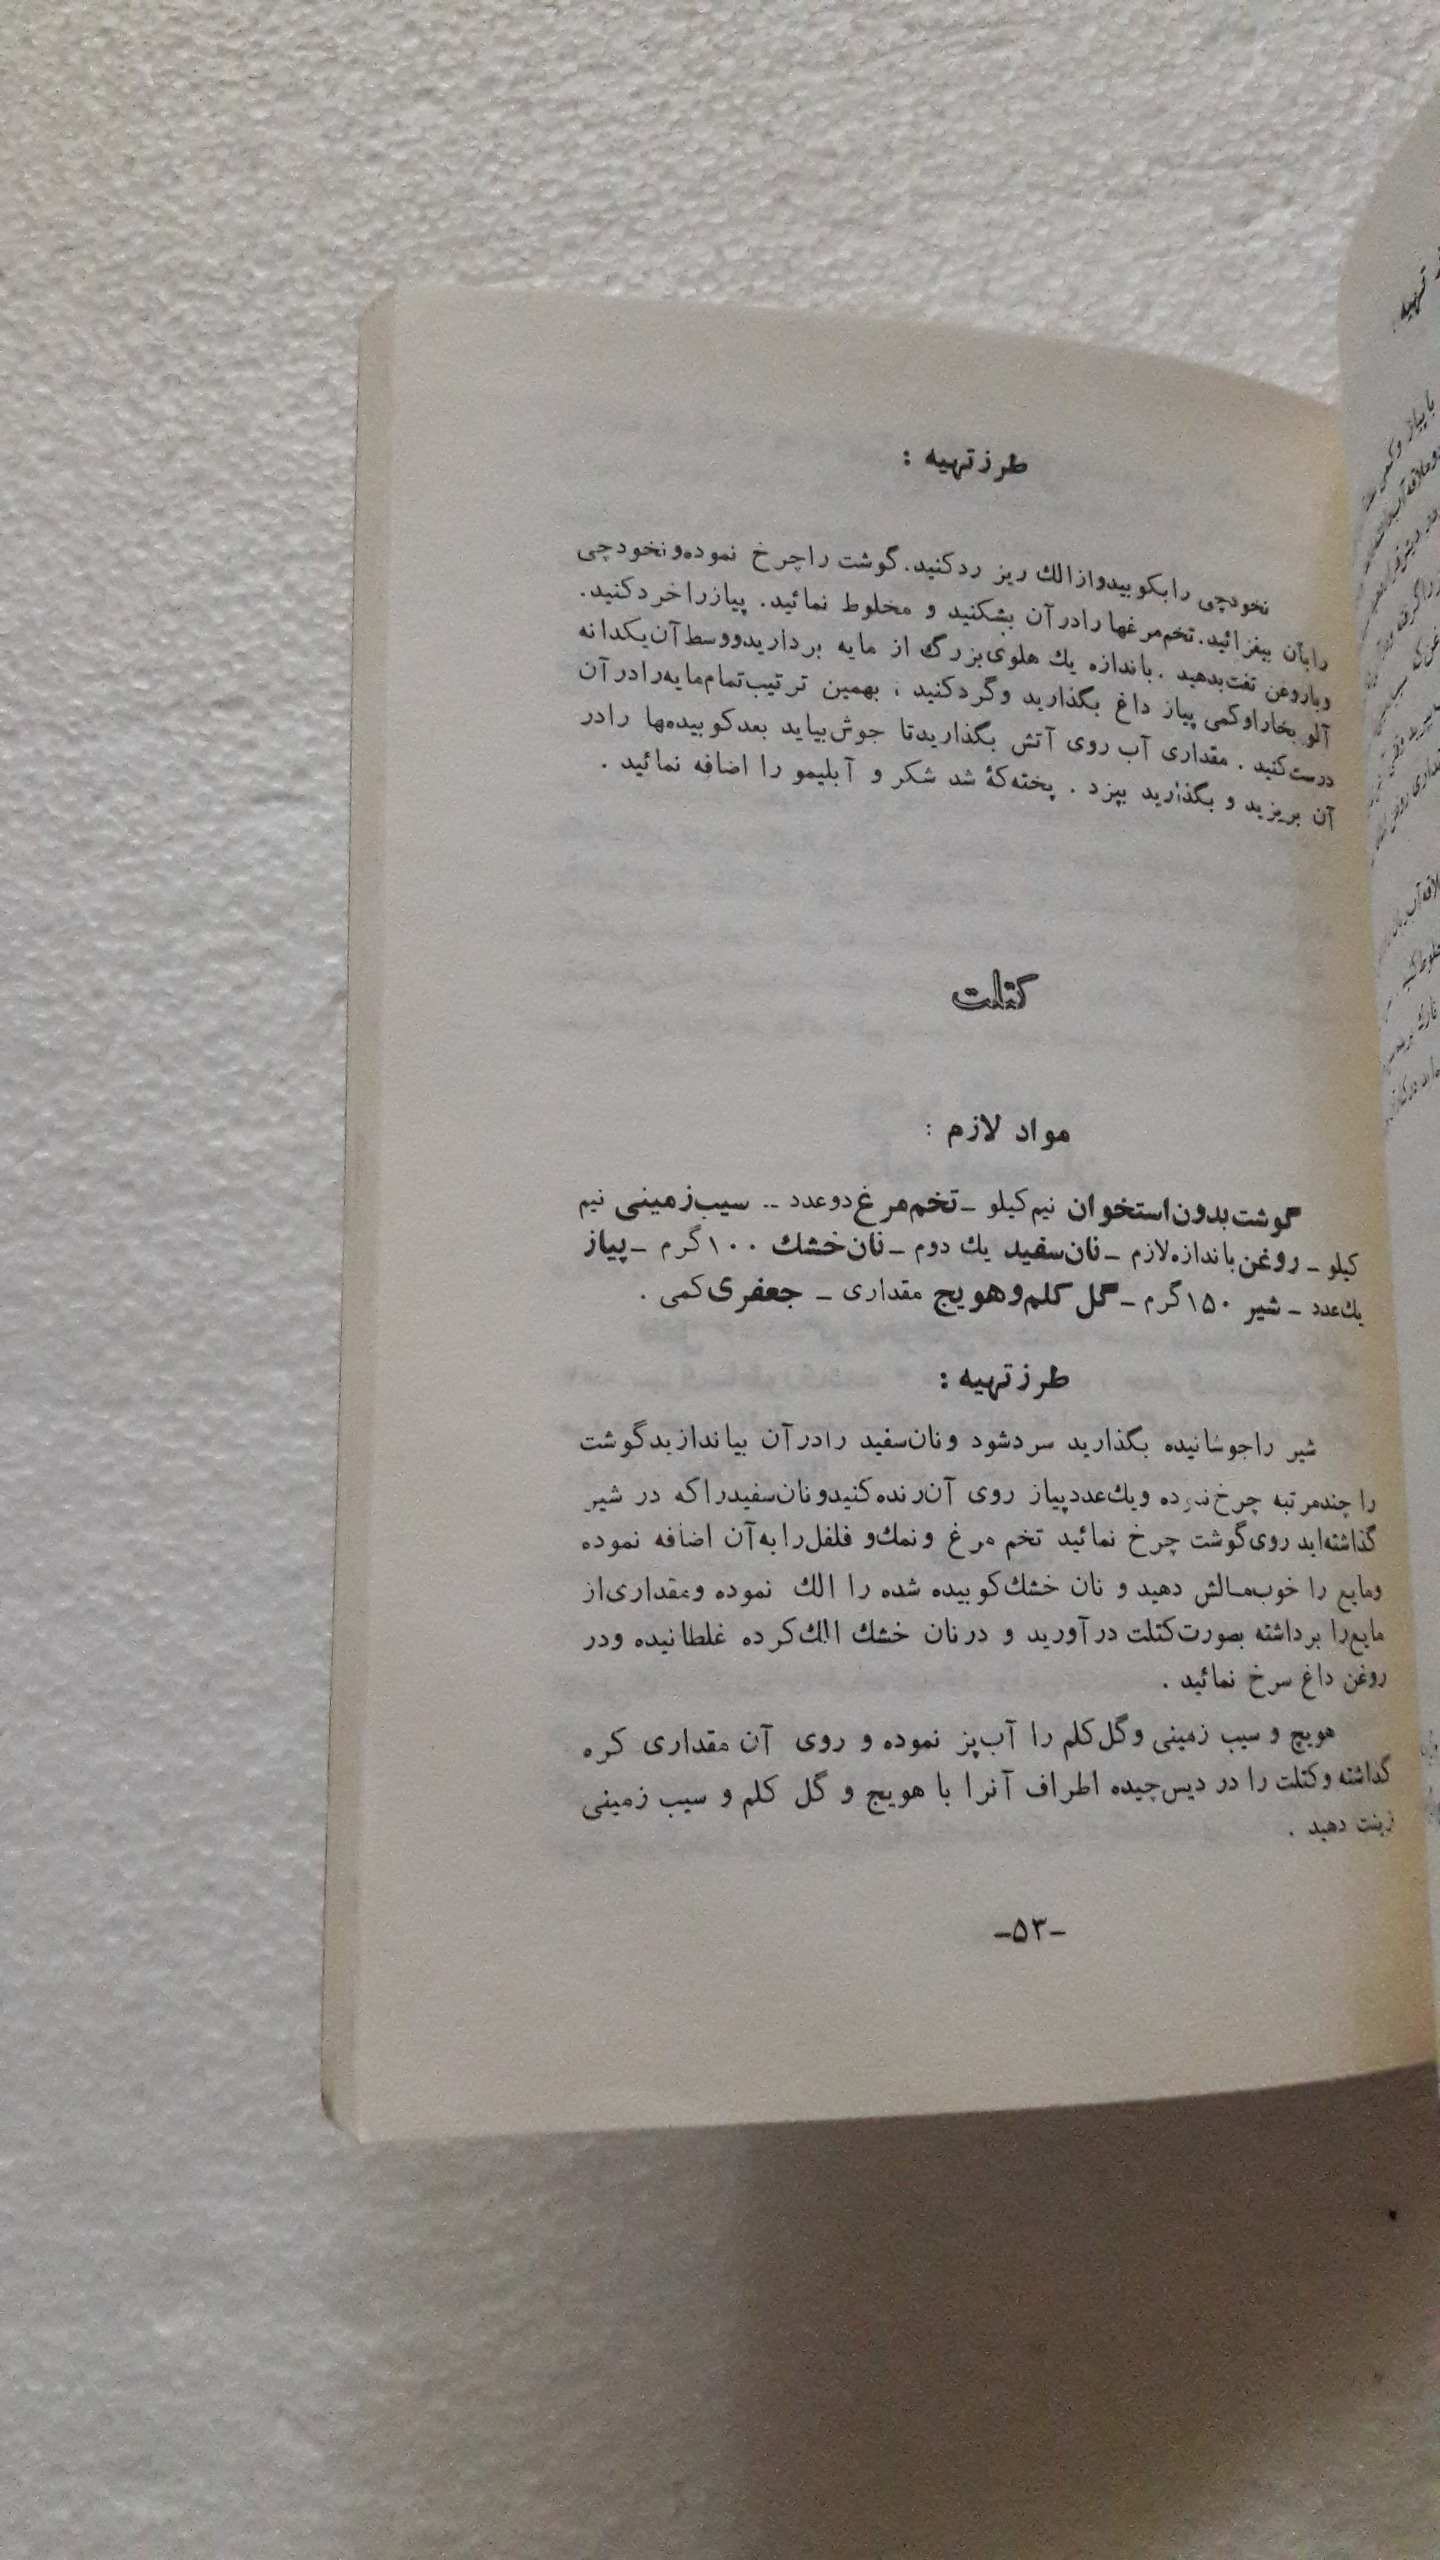 طرز تهیه :
نخودچی را بکوبید و از الك ریز رد کنید. گوشت را چرخ نموده و نخودچی
را بآن بیفزائید. تخم مرغها را در آن بشکنید و مخلوط نمائید. پیاز را خرد کنید.
و با روغن تفت بدهید . باندازه یك هلوی بزرگ از مایه بردارید و وسط آن یکدانه
آلو بخارا و کمی پیاز داغ بگذارید و گرد کنید ، بهمین ترتیب تمام مایه را در آن
درست کنید . مقداری آب روی آتش بگذارید تا جوش بیاید بعد کوبیده‌ها را در
آن بریزید و بگذارید بپزد . پخته که شد شکر و آبلیمو را اضافه نمائید .
کتلت
مواد لازم :
گوشت بدون استخوان نیم کیلو – تخم مرغ دو عدد – سیب زمینی نیم
کیلو – روغن باندازه لازم – نان سفید یك دوم – نان خشك ۱۰۰ گرم – پیاز
یك عدد – شیر ۱۵۰ گرم – گل کلم و هویج مقداری – جعفری کمی .
طرز تهیه :
شیر را جوشانیده بگذارید سرد شود و نان سفید را در آن بیاندازید گوشت
را چند مرتبه چرخ نموده و یك عدد پیاز روی آن رنده کنید و نان سفید را که در شیر
گذاشته اید روی گوشت چرخ نمائید تخم مرغ و نمك و فلفل را به آن اضافه نموده
و مایع را خوب مالش دهید و نان خشك کوبیده شده را الك نموده و مقداری از
مایع را برداشته بصورت کتلت در آورید و در نان خشك الك کرده غلطانیده و در
روغن داغ سرخ نمائید .
هویج و سیب زمینی و گل کلم را آب پز نموده و روی آن مقداری کره
گذاشته و کتلت را در دیس چیده اطراف آنرا با هویج و گل کلم و سیب زمینی
زینت دهید .
–۵۳–